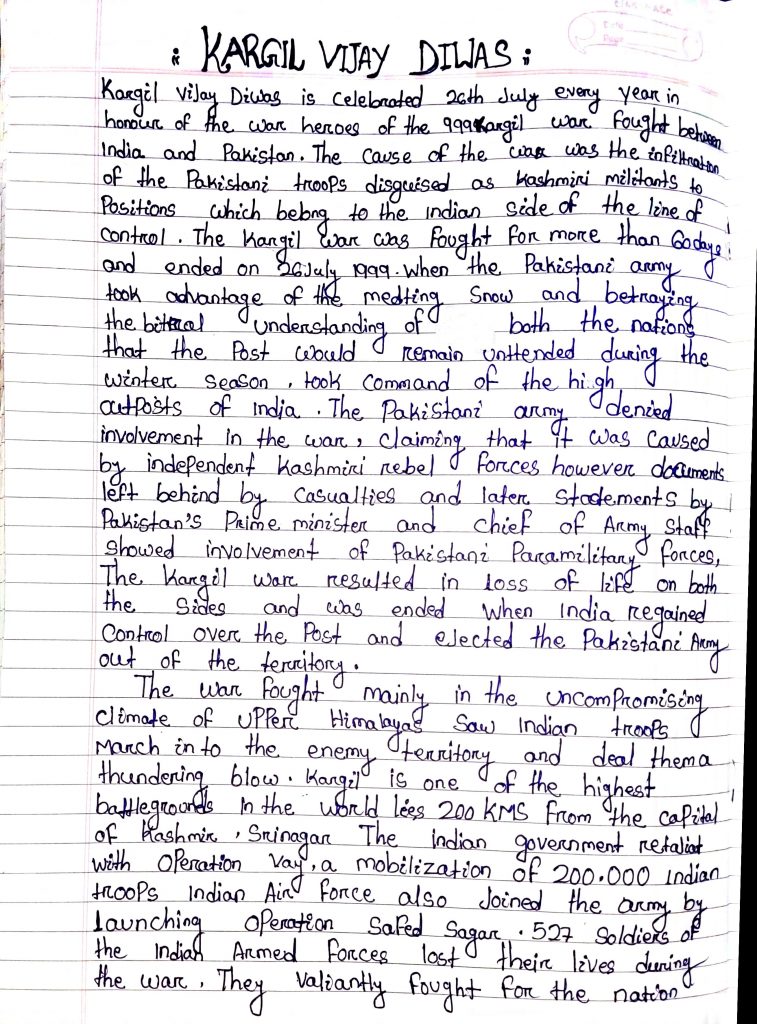 : KARGIL VIJAY DIWAS :
Kargil Vijay Diwas is celebrated 26th July every year in
honour of the war heroes of the 999 Kargil war fought between
India and Pakistan. The cause of the war was the infiltration
of the Pakistani troops disguised as Kashmiri militants to
Positions which belong to the indian side of the line of
control. The Kargil War was fought for more than 60 days
and ended on 26 July 1999. When the Pakistani army
took advantage of the medting snow and betraying
the biteral understanding of both the nations
that the Post would remain unttended during the
winter season, took command of the high
outposts of india. The Pakistani army denied
involvement in the war, claiming that it was caused
by independent Kashmiri rebel forces however documents
left behind by casualties and later statements by
Pakistan's Prime minister and chief of Army Staff
showed involvement of Pakistani Paramilitary forces,
The Kargil war resulted in loss of life on both
the Sides and was ended when India regained
Control over the Post and ejected the Pakistani Army
out of the territory.
The war fought mainly in the uncompromising
climate of upper Himalayas Saw indian troops
March in to the enemy territory and deal them a
thundering blow. Kargil is one of the highest
battlegrounds in the world lees 200 KMS from the capital
of Kashmir, Srinagar The indian government retaliat
with Operation Vay, a mobilization of 200.000 indian
troops Indian Air force also Joined the army by
launching Operation Safed Sagar. 527 Soldiers of
the Indian Armed forces lost their lives during
the war. They Valiantly fought for the nation